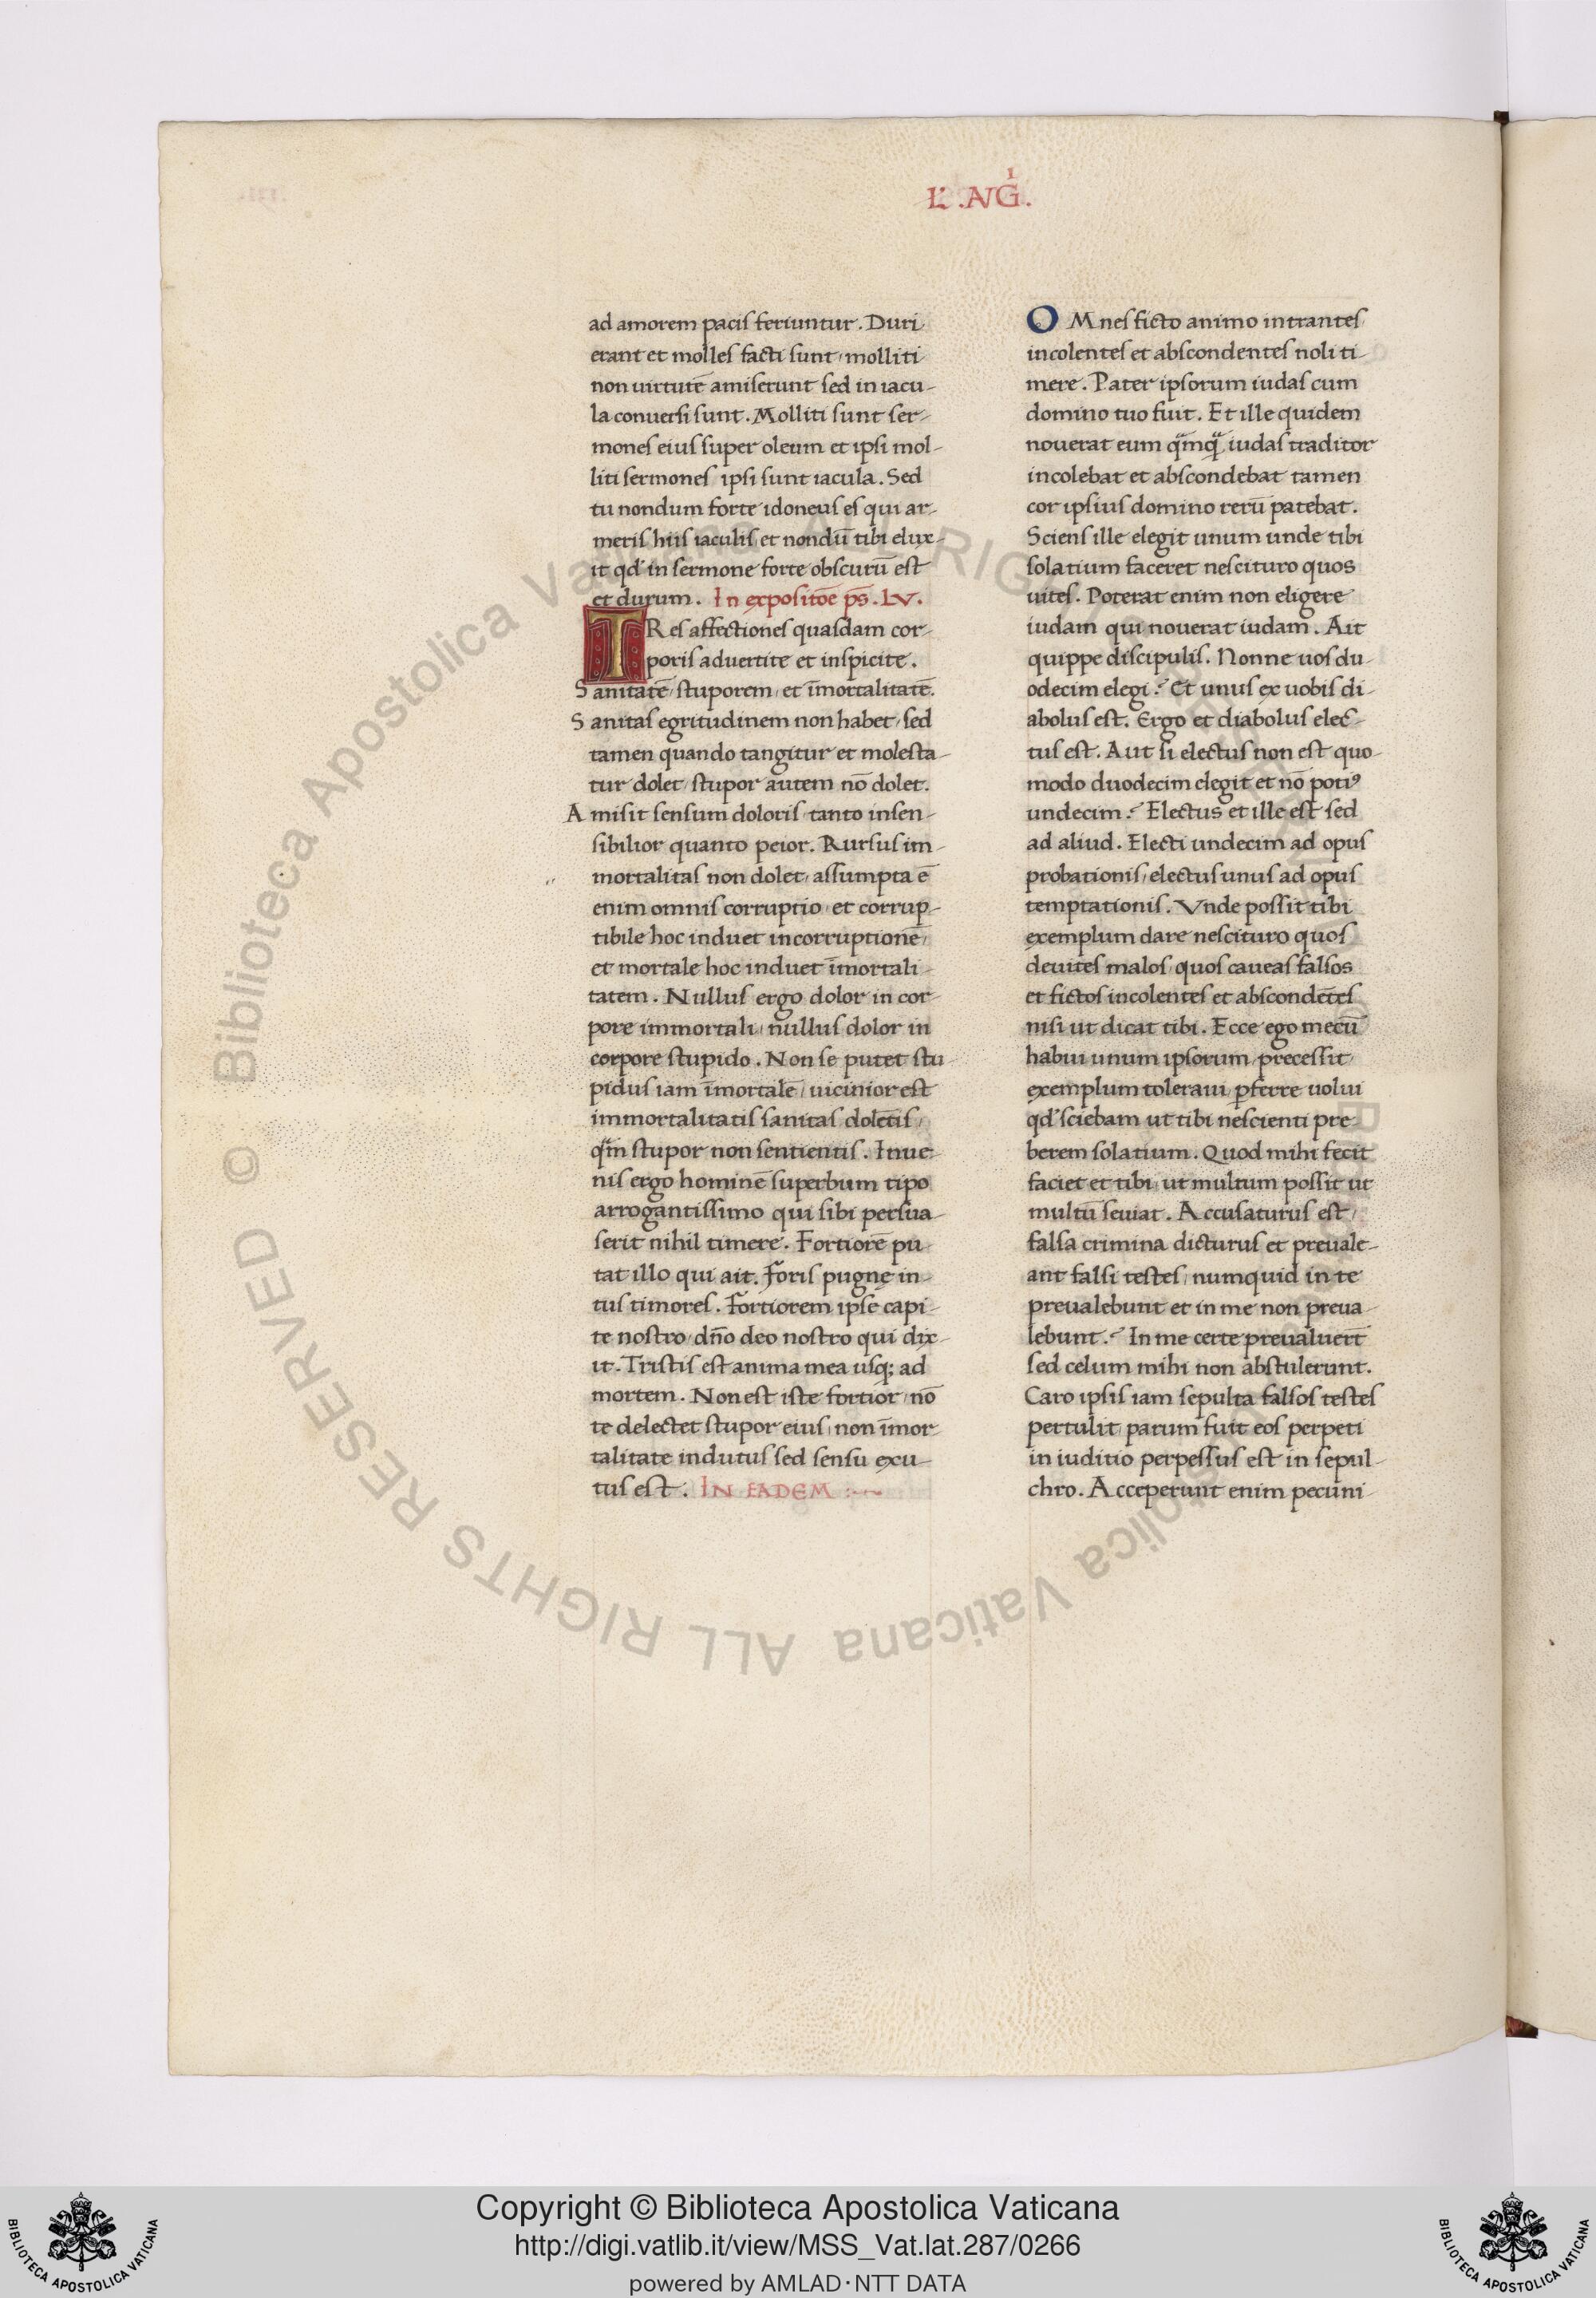 Ł .AVG͛.
ad amorem pacis feriuntur. Duri
erant et molles facti sunt, molliti
non uirtutē amiserunt sed in iacu-
la conuersi sunt. Molliti sunt ser-
mones eius super oleum et ipsi mol-
liti sermones ipsi sunt iacula. Sed
tu nondum forte idoneus es qui ar-
meris hiis iaculis, et nondū tibi elux-
it qd' in sermone forte obscurū est
et durum. In expositōe ps̄. LV.
TRes affectiones quasdam cor-
poris aduertite et inspicite.
Sanitatē, stuporem, et īmortalitatē.
Sanitas egritudinem non habet, sed
tamen quando tangitur et molesta-
tur dolet, stupor autem nō dolet.
Amisit sensum doloris, tanto insen-
sibilior quanto peior. Rursus im-
mortalitas non dolet, assumpta ē
enim omnis corruptio, et corrup-
tibile hoc induet incorruptionē,
et mortale hoc induet īmortali-
tatem. Nullus ergo dolor in cor-
pore immortali, nullus dolor in
corpore stupido. Non se putet stu-
pidus iam īmortalē, uicinior est
immortalitatis sanitas dolētis,
qm̄ stupor non sentientis. Inue-
nis ergo hominē superbum tipo
arrogantissimo qui sibi persua-
serit nihil timere. Fortiorē pu-
tat illo qui ait. Foris pugnę in-
tus timores. Fortiorem ipse capi-
te nostro, dn̄o deo nostro qui dix-
it. Tristis est anima mea usq; ad
mortem. Non est iste fortior, nō
te delectet stupor eius, non īmor
talitate indutus sed sensu exu-
tus est. IN EADEM :~~
OMnes ficto animo intrantes,
incolentes et abscondentes noli ti-
mere. Pater ipsorum iudas cum
domino tuo fuit. Et ille quidem
nouerat eum qm̄q̄, iudas traditor
incolebat et abscondebat tamen
cor ipsius domino rerū patebat.
Sciens ille elegit unum unde tibi
solatium faceret nescituro quos
uites. Poterat enim non eligere
iudam qui nouerat iudam. Ait
quippe discipulis. Nonne uos du-
odecim elegi? Et unus ex uobis di-
abolus est. Ergo et diabolus elec-
tus est. Aut si electus non est quo-
modo duodecim elegit et nō potiꝰ
undecim? Electus et ille est sed
ad aliud. Electi undecim ad opus
probationis, electus unus ad opus
temptationis. Vnde possit tibi
exemplum dare nescituro quos
deuites malos, quos caueas falsos
et fictos incolentes et abscondētes
nisi ut dicat tibi. Ecce ego mecū
habui unum ipsorum, precessit
exemplum toleraui, ꝑferre uolui
qd' sciebam ut tibi nescienti pre-
berem solatium. Quod mihi fecit
faciet et tibi, ut multum possit ut
multū seuiat. Accusaturus est,
falsa crimina dicturus et preuale-
ant falsi testes, numquid in te
preualebunt et in me non preua-
lebunt? In me certe preualuert̄
sed celum mihi non abstulerunt.
Caro ipsis iam sepulta falsos testes
pertulit, parum fuit eos perpeti
in iuditio perpessus est in sepul-
chro. Acceperunt enim pecuni-
© Biblioteca Apostolica Vaticana ALL RIGHTS RESERVED
Copyright © Biblioteca Apostolica Vaticana
http://digi.vatlib.it/view/MSS_Vat.lat.287/0266
powered by AMLAD·NTT DATA
BIBLIOTECA APOSTOLICA VATICANA
BIBLIOTECA APOSTOLICA VATICANA